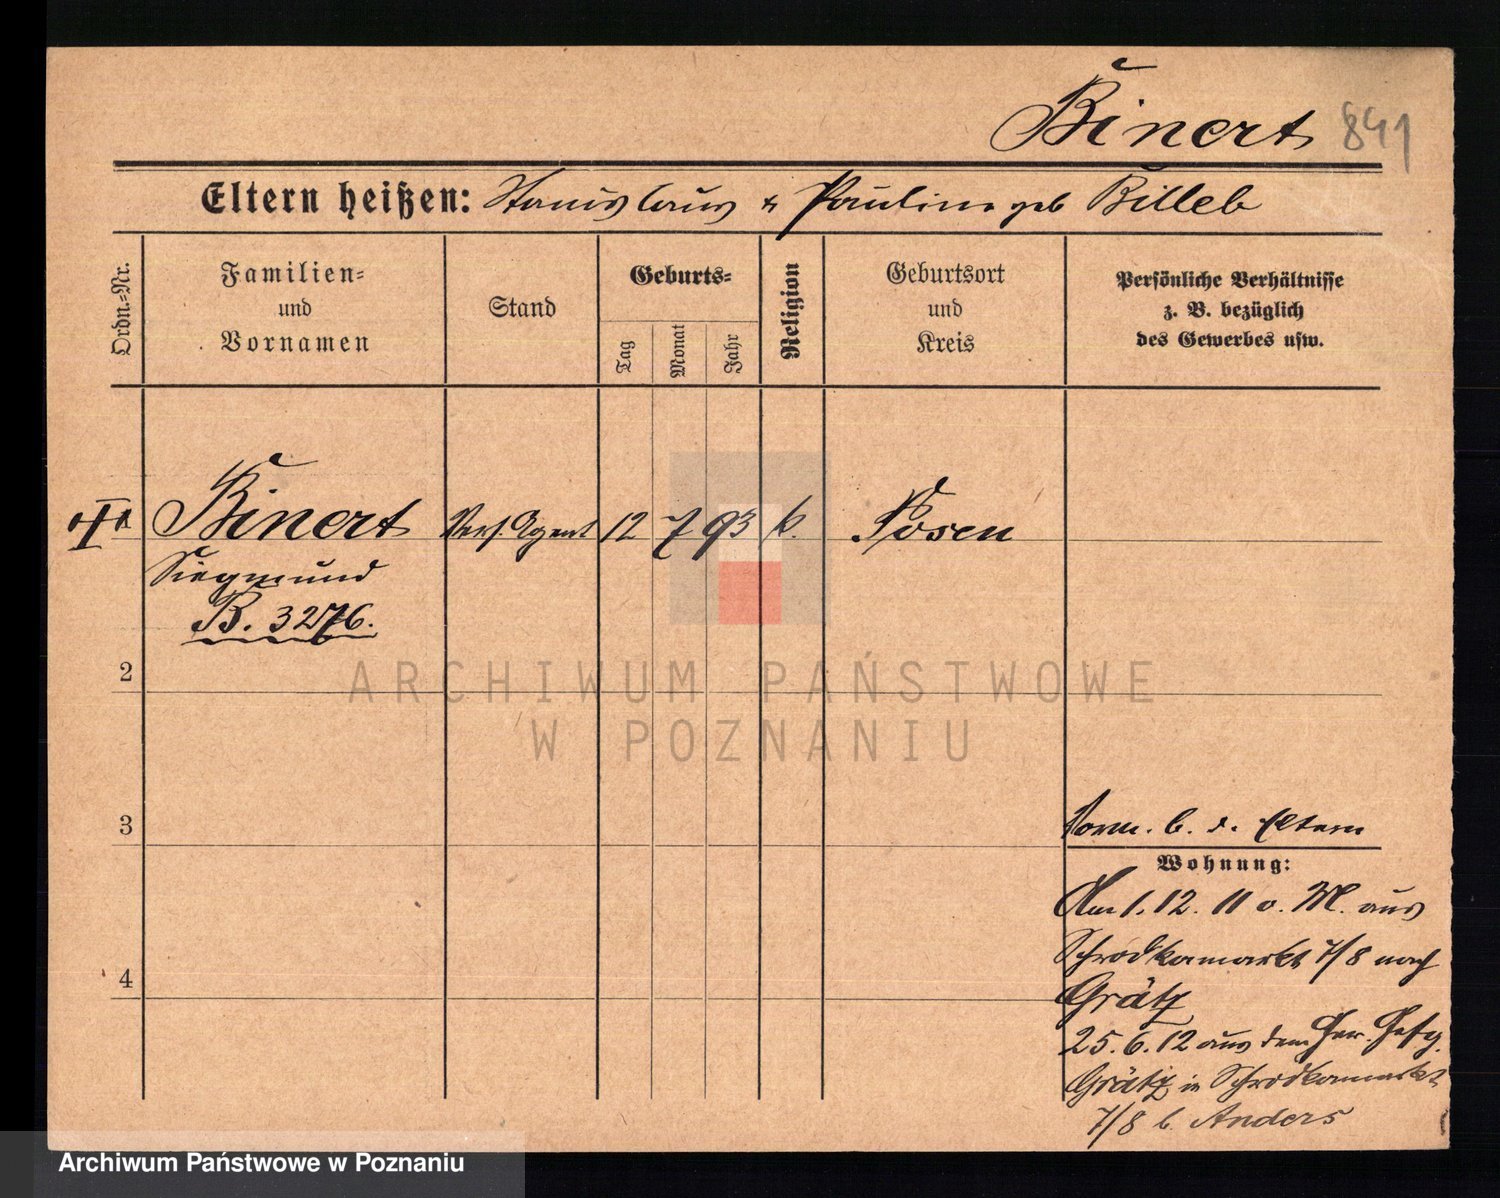 Binert 841
Eltern heißen: Stanislaus & Pauline geb Billeb
Ordn.=Nr.
Familien=
und
Vornamen
Stand
Geburts=
Tag
Monat
Jahr
Religion
Geburtsort
und
Kreis
Persönliche Verhältnisse
z. B. bezüglich
des Gewerbes usw.
Binert Vers. Agent 12 7 93 k. Posen
Siegmund
B. 3276.
2
ARCHIWUM PAŃSTWOWE
W POZNANIU
3
b. d. Eltern
Wohnung:
Am 1. 12. 11 v. M. aus
Schrodkamarkt 7/8 nach
Grätz
4
25. 6. 12 aus dem Ger. Gefg.
Grätz in Schrodkamarkt
7/8 b. Anders
Archiwum Państwowe w Poznaniu